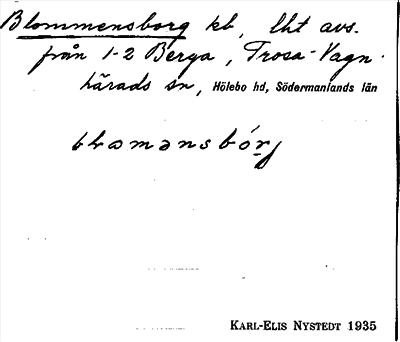 Blommensborg kb, lht avs.
från 1-2 Berga, Trosa-Vagn-
härads sn, Hölebo hd, Södermanlands län
KARL-ELIS NYSTEDT 1935